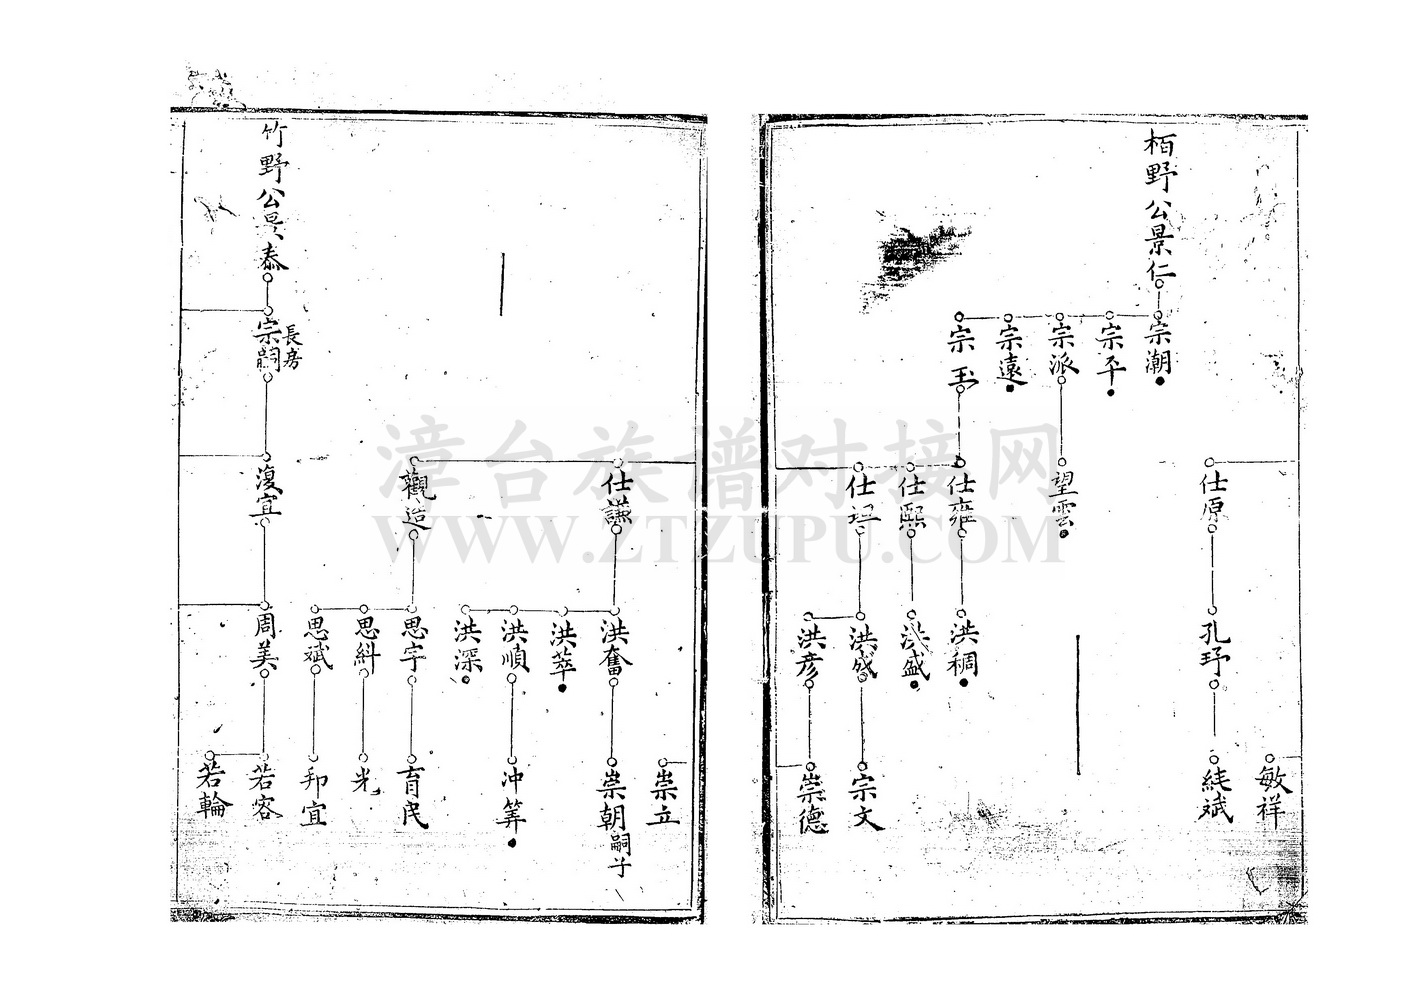 栢野公景仁
宗潮
宗平
宗派
宗遠
宗玉
仕原
望雲
仕雍
仕熙
仕
孔玗
洪稠
洪盛
洪盛
洪彦
敏祥
斌
宗文
崇德
竹野公景泰
長房
宗嗣
仕謙
觀造
復宜
洪奮
洪萃
洪順
洪深
思宇
思斌
周美
崇立
崇朝嗣子
冲筭
育民
光
邦宜
若容
若輪
漳台族谱对接网
WWW.ZTZUPU.COM